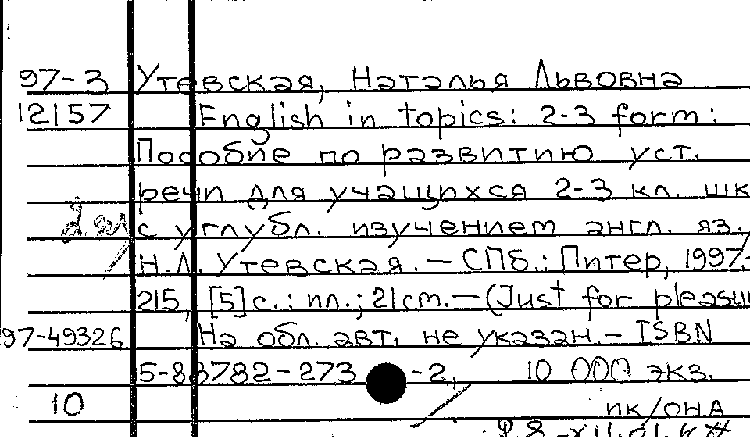 97-3 Утевская, Наталья Львовна
12157 English in topics: 2-3 form:
Пособие по развитию уст.
речи для учащихся 2-3 кл. шк
с углубл. изучением англ. яз./
Н.Л. Утевская. — СПб.: Питер, 1997.-
215, [5]с.: ил.; 21см.—(Just for pleasu
97-49326 На обл. авт. не указан.— ISBN
5-88782-273-2, 10 000 экз.
10 ПК/ОНА